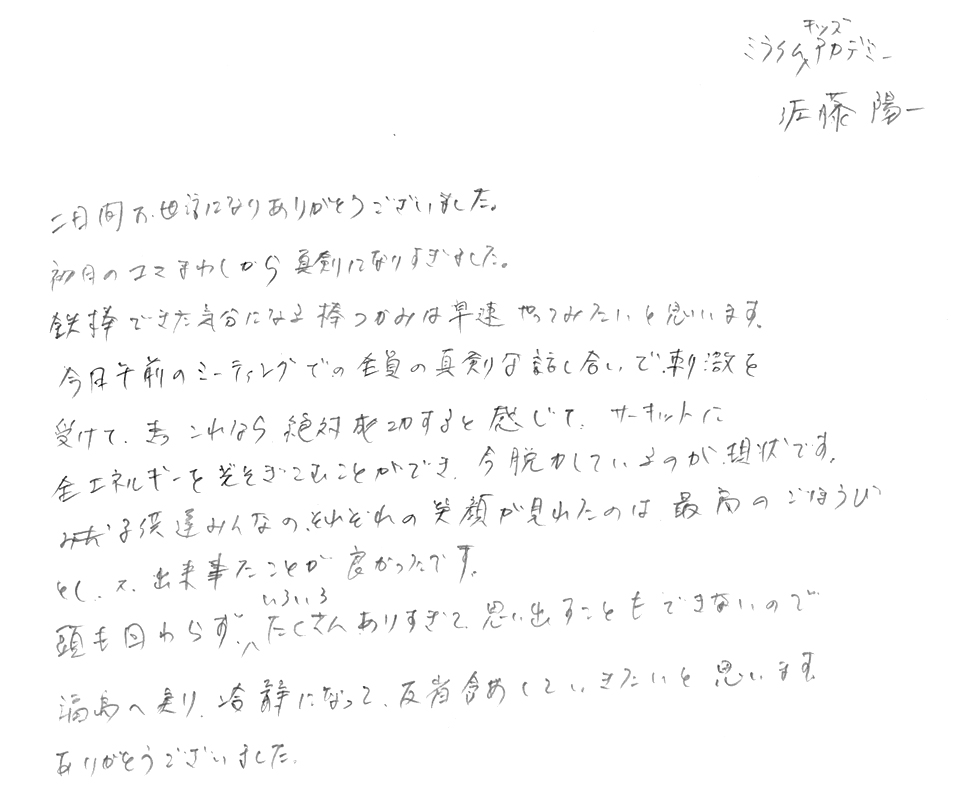 ミライムキッズアカデミー
佐藤 陽一
二日間お世話になりありがとうございました。
初日のコマまわしから真剣になりすぎました。
鉄棒できた気分になる棒つかみは早速やってみたいと思います。
今日午前のミーティングでの全員の真剣な話し合いで、刺激を
受けて、これなら絶対成功すると感じて、サーキットに
全エネルギーをそそぎこむことができ、今脱力しているのが現状です。
子供達みんなの、それぞれの笑顔が見れたのは最高のごほうび
として、出来事たことが良かったです。
頭も回わらず、いろいろたくさんありすぎて、思い出すこともできないので
福島へ戻り、冷静になって、反省含めしていきたいと思います。
ありがとうございました。